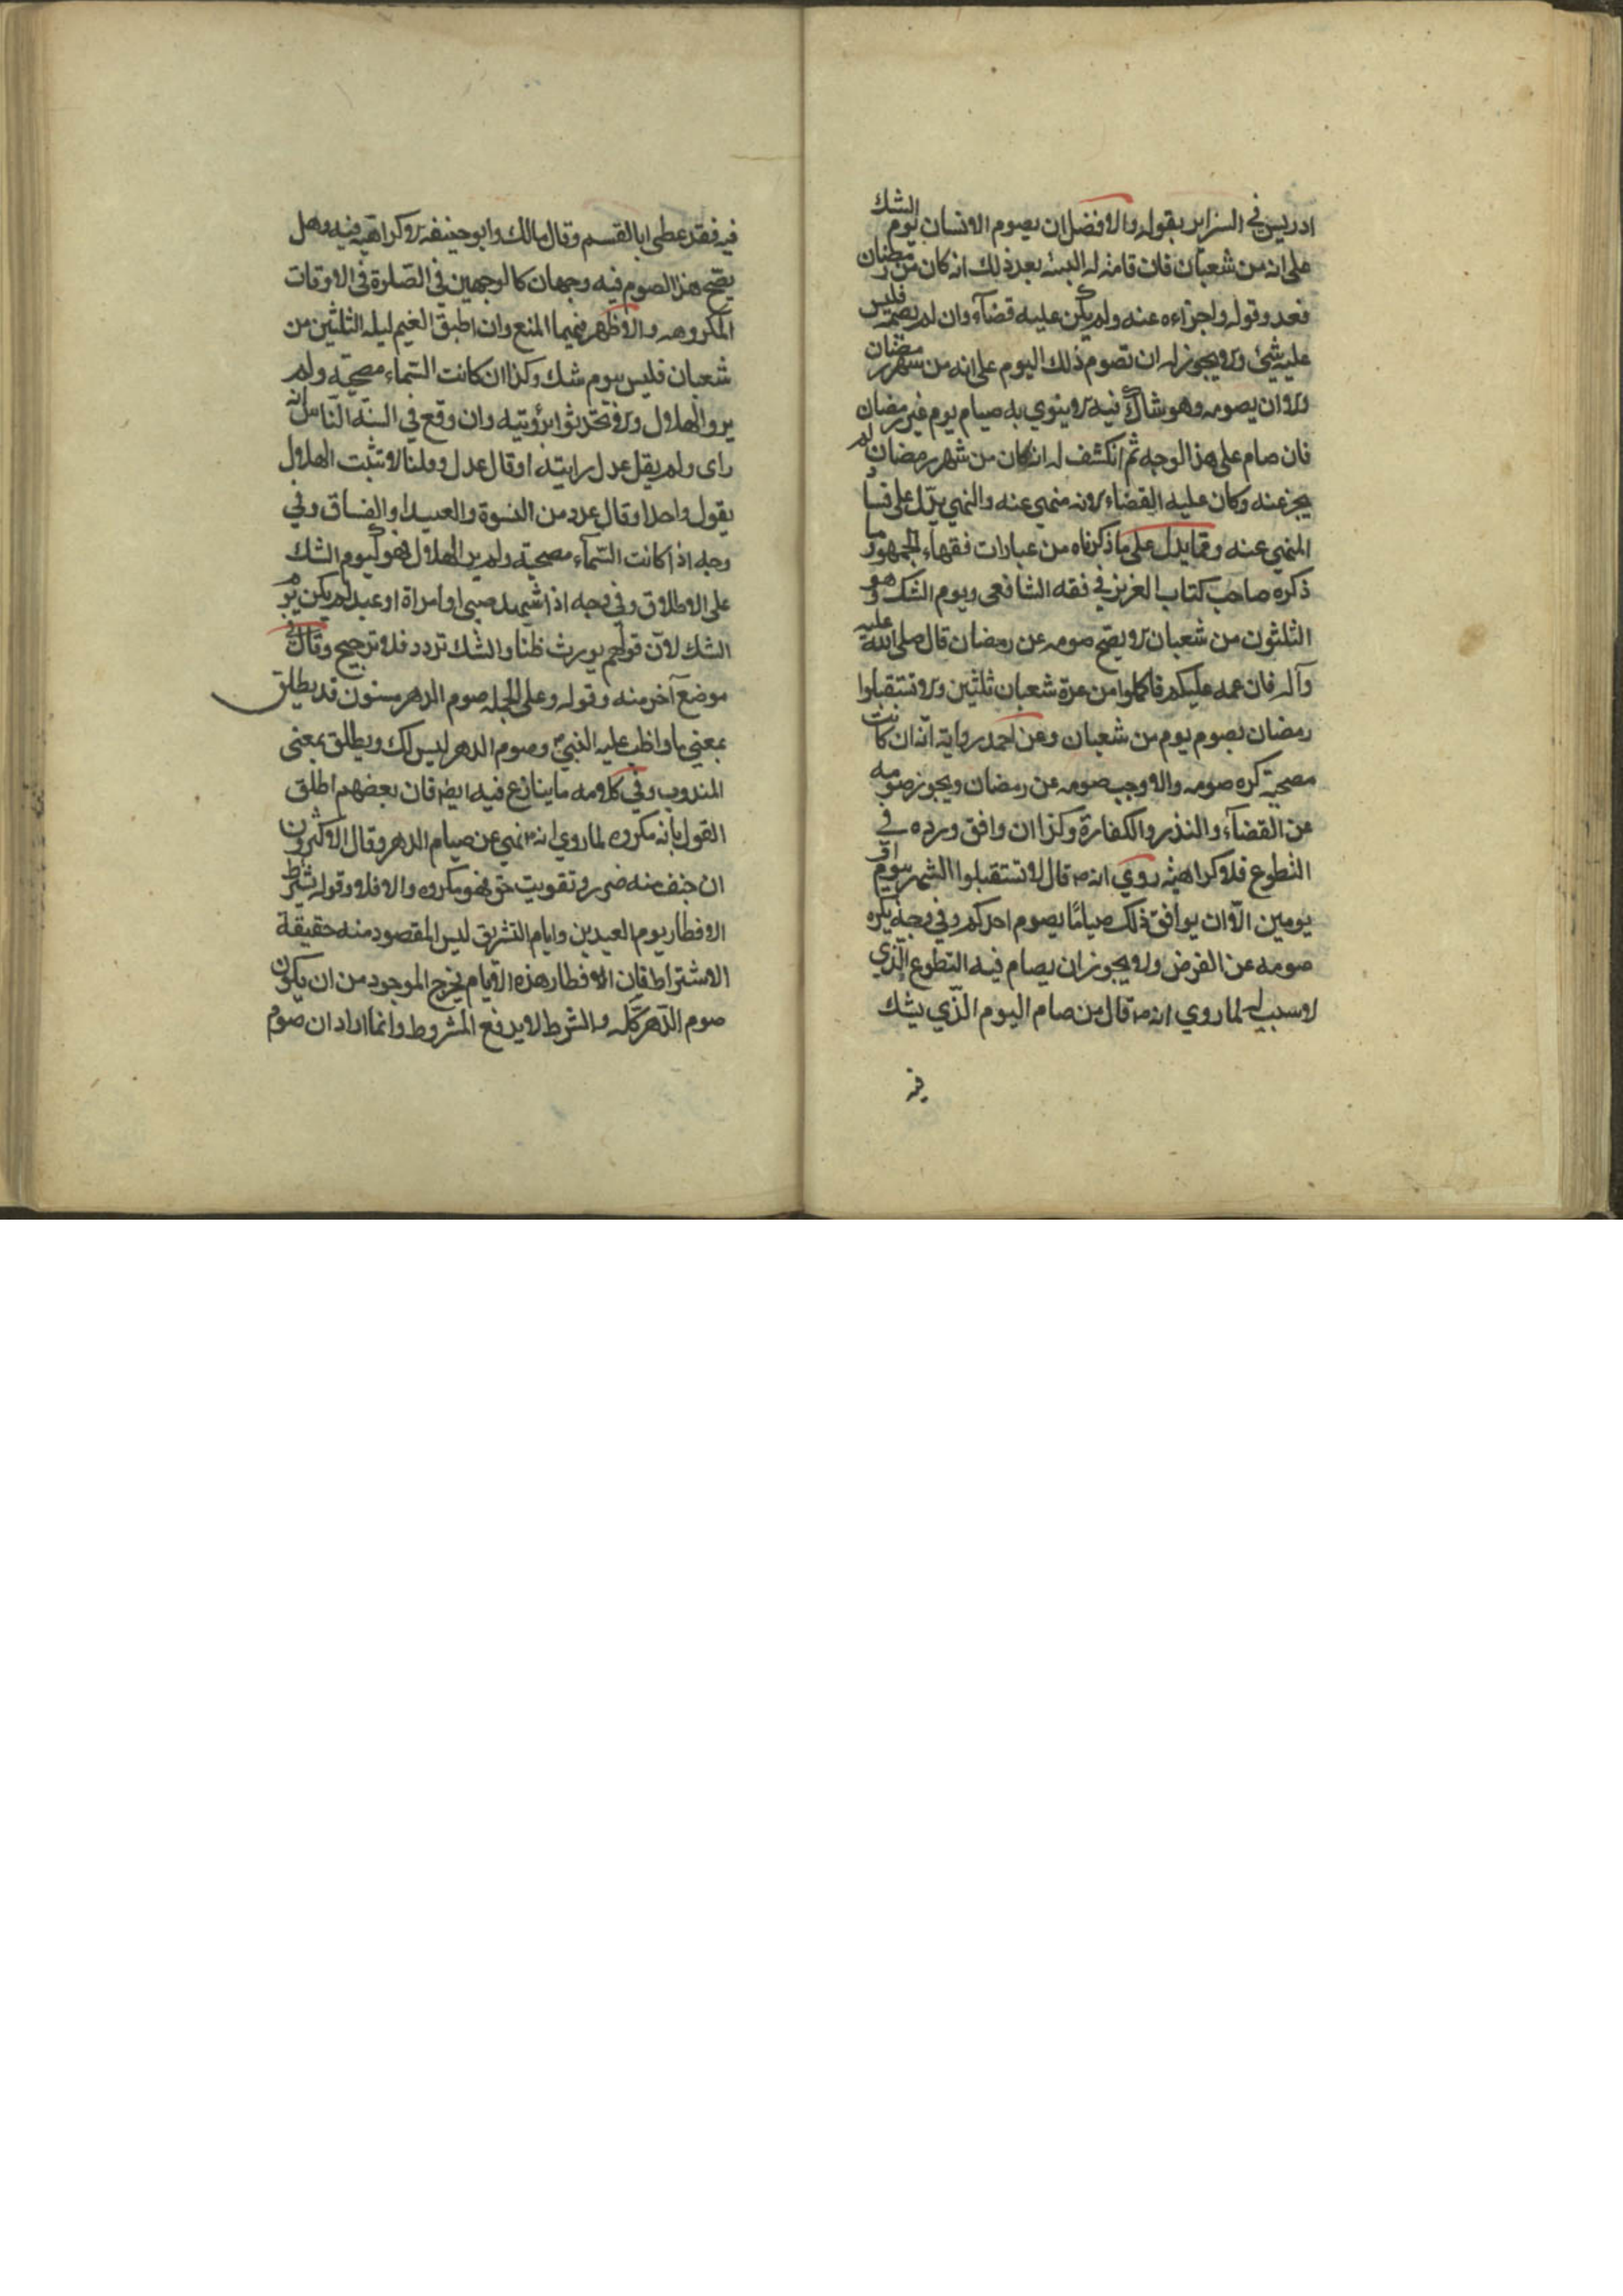 ادريس في السراير بقوله والافضل ان يصوم الانسان يوم الشك
على انه من شعبان فان قامت له البينة بعد ذلك انه كان من رمضان
فعد وقوله واجزاءه عنه ولم يكن عليه قضآء وان لم يصمه فليس
عليه شيئ ولا يجوز له ان تصوم ذلك اليوم على انه من شهر رمضان
ولا ان يصومه وهو شاك فيه لا ينوي به صيام يوم غير رمضان
فان صام على هذا الوجه ثم انكشف له انه كان من شهر رمضان لم
يجز عنه وكان عليه القضاء لانه منهي عنه والنهي يدّل على فساد
المنهي عنه ومما يدل على ما ذكرناه من عبارات فقهاء الجمهور ما
ذكره صاحب كتاب العزيز في فقه الشافعى ويوم الشك وهو
الثلثون من شعبان لا يصحّ صومه عن رمضان قال صلى الله عليه
وآله فان غمه عليكم فاكملوا من عدة شعبان ثلثين ولا تستقبلوا
رمضان بصوم يوم من شعبان وعن احمد رواية انّه ان كانت
مصحية كره صومه والا وجب صومه عن رمضان ويجوز صومه
عن القضآء والنذر والكفارة وكذا ان وافق ورده في
التطوع فلا كراهية روي انه ص قال لا تستقبلوا الشهر بيوم او
يومين الّا ان يوافق ذلك صيامًا يصوم احدكم وفي وجه يكره
صومه عن الفرض ولا يجوز ان يصام فيه التطوع الّذي
لا سبب له لما روي انه ص قال من صام اليوم الّذي يشك
فيه
فيه فقد عطى ابا القسم وقال مالك وابو حنيفه لا كراهية فيه وهل
يصحّ هذا الصوم فيه وجهان كالوجهين في الصّلوة في الاوقات
المكروهه والاظهر منهما المنع وان اطبق الغيم ليله الثلثين من
شعبان فليس بيوم شك وكذا ان كانت السّماء مصحية ولم
يروا الهلال ولا تحدّثوا برؤيته وان وقع في السنّة النّاس انه
راى ولم يقل عدل رايته او قال عدل وقلنا لا تثبت الهلال
بقول واحد او قال عدد من النسوة والعبيد او الفساق وفي
وجه اذا كانت السّمآء مصحية ولم ير الهلال فهو كيوم الشك
على الاطلاق وفي وجه اذا شهد صبي او امراة او عبد لم يكن يوم
الشك لانّ قولهم يورث ظنّا والشّك تردد فلا ترجيح وقال في
موضع آخر منه وقوله وعلى الجله صوم الدهر مسنون قد يطلق
بمعني ما واظب عليه النبيّ ص وصوم الدهر ليس لك ويطلق بمعنى
المندوب وفي كلامه ما ينازع فيه ايضا فان بعضهم اطلق
القول بانه مكروه لما روي انه ص نهي عن صيام الدهر وقال الاكثرون
ان خيف منه ضرر وتفويت حق فهو مكروه والا فلا وقوله بشرط
الافطار يوم العيدين وايام التشريق ليس المقصود منه حقيقة
الاشتراط فان الافطار هذه الايام يخرج الموجود من ان يكون
صوم الدّهر كلّه والشرط لا يدفع المشروط وانما اراد ان صوم